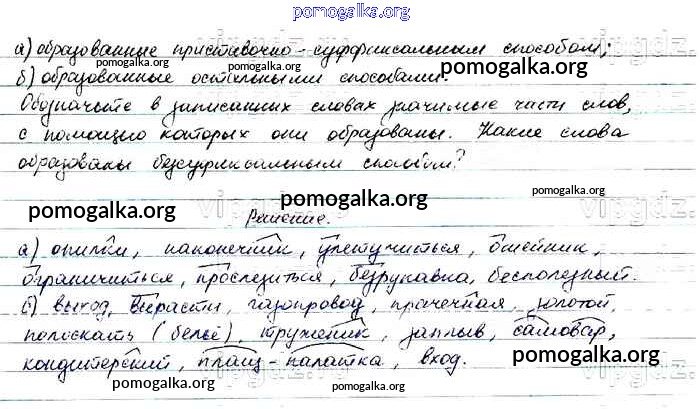 pomogalka.org
а) образованные приставочно-суффиксальным способом;
pomogalka.org
б) образованные остальными способами.
pomogalka.org
Обозначьте в записанных словах значимые части слов,
с помощью которых они образованы. Какие слова
образованы безсуффиксальным способом?
pomogalka.org
pomogalka.org
pomogalka.org
vipgdz.
Решение.
а) опилки, наконечник, улетучиться, ошейник,
ограничиться, прослезиться, безрукавка, бесполезный.
б) выход, вырасти, газопровод, прачечная, золотой,
полоскать (бельё), труженик, заплыв, самовар,
кондитерский, плащ-палатка, вход.
pomogalka.org
pomogalka.org
pomogalka.org